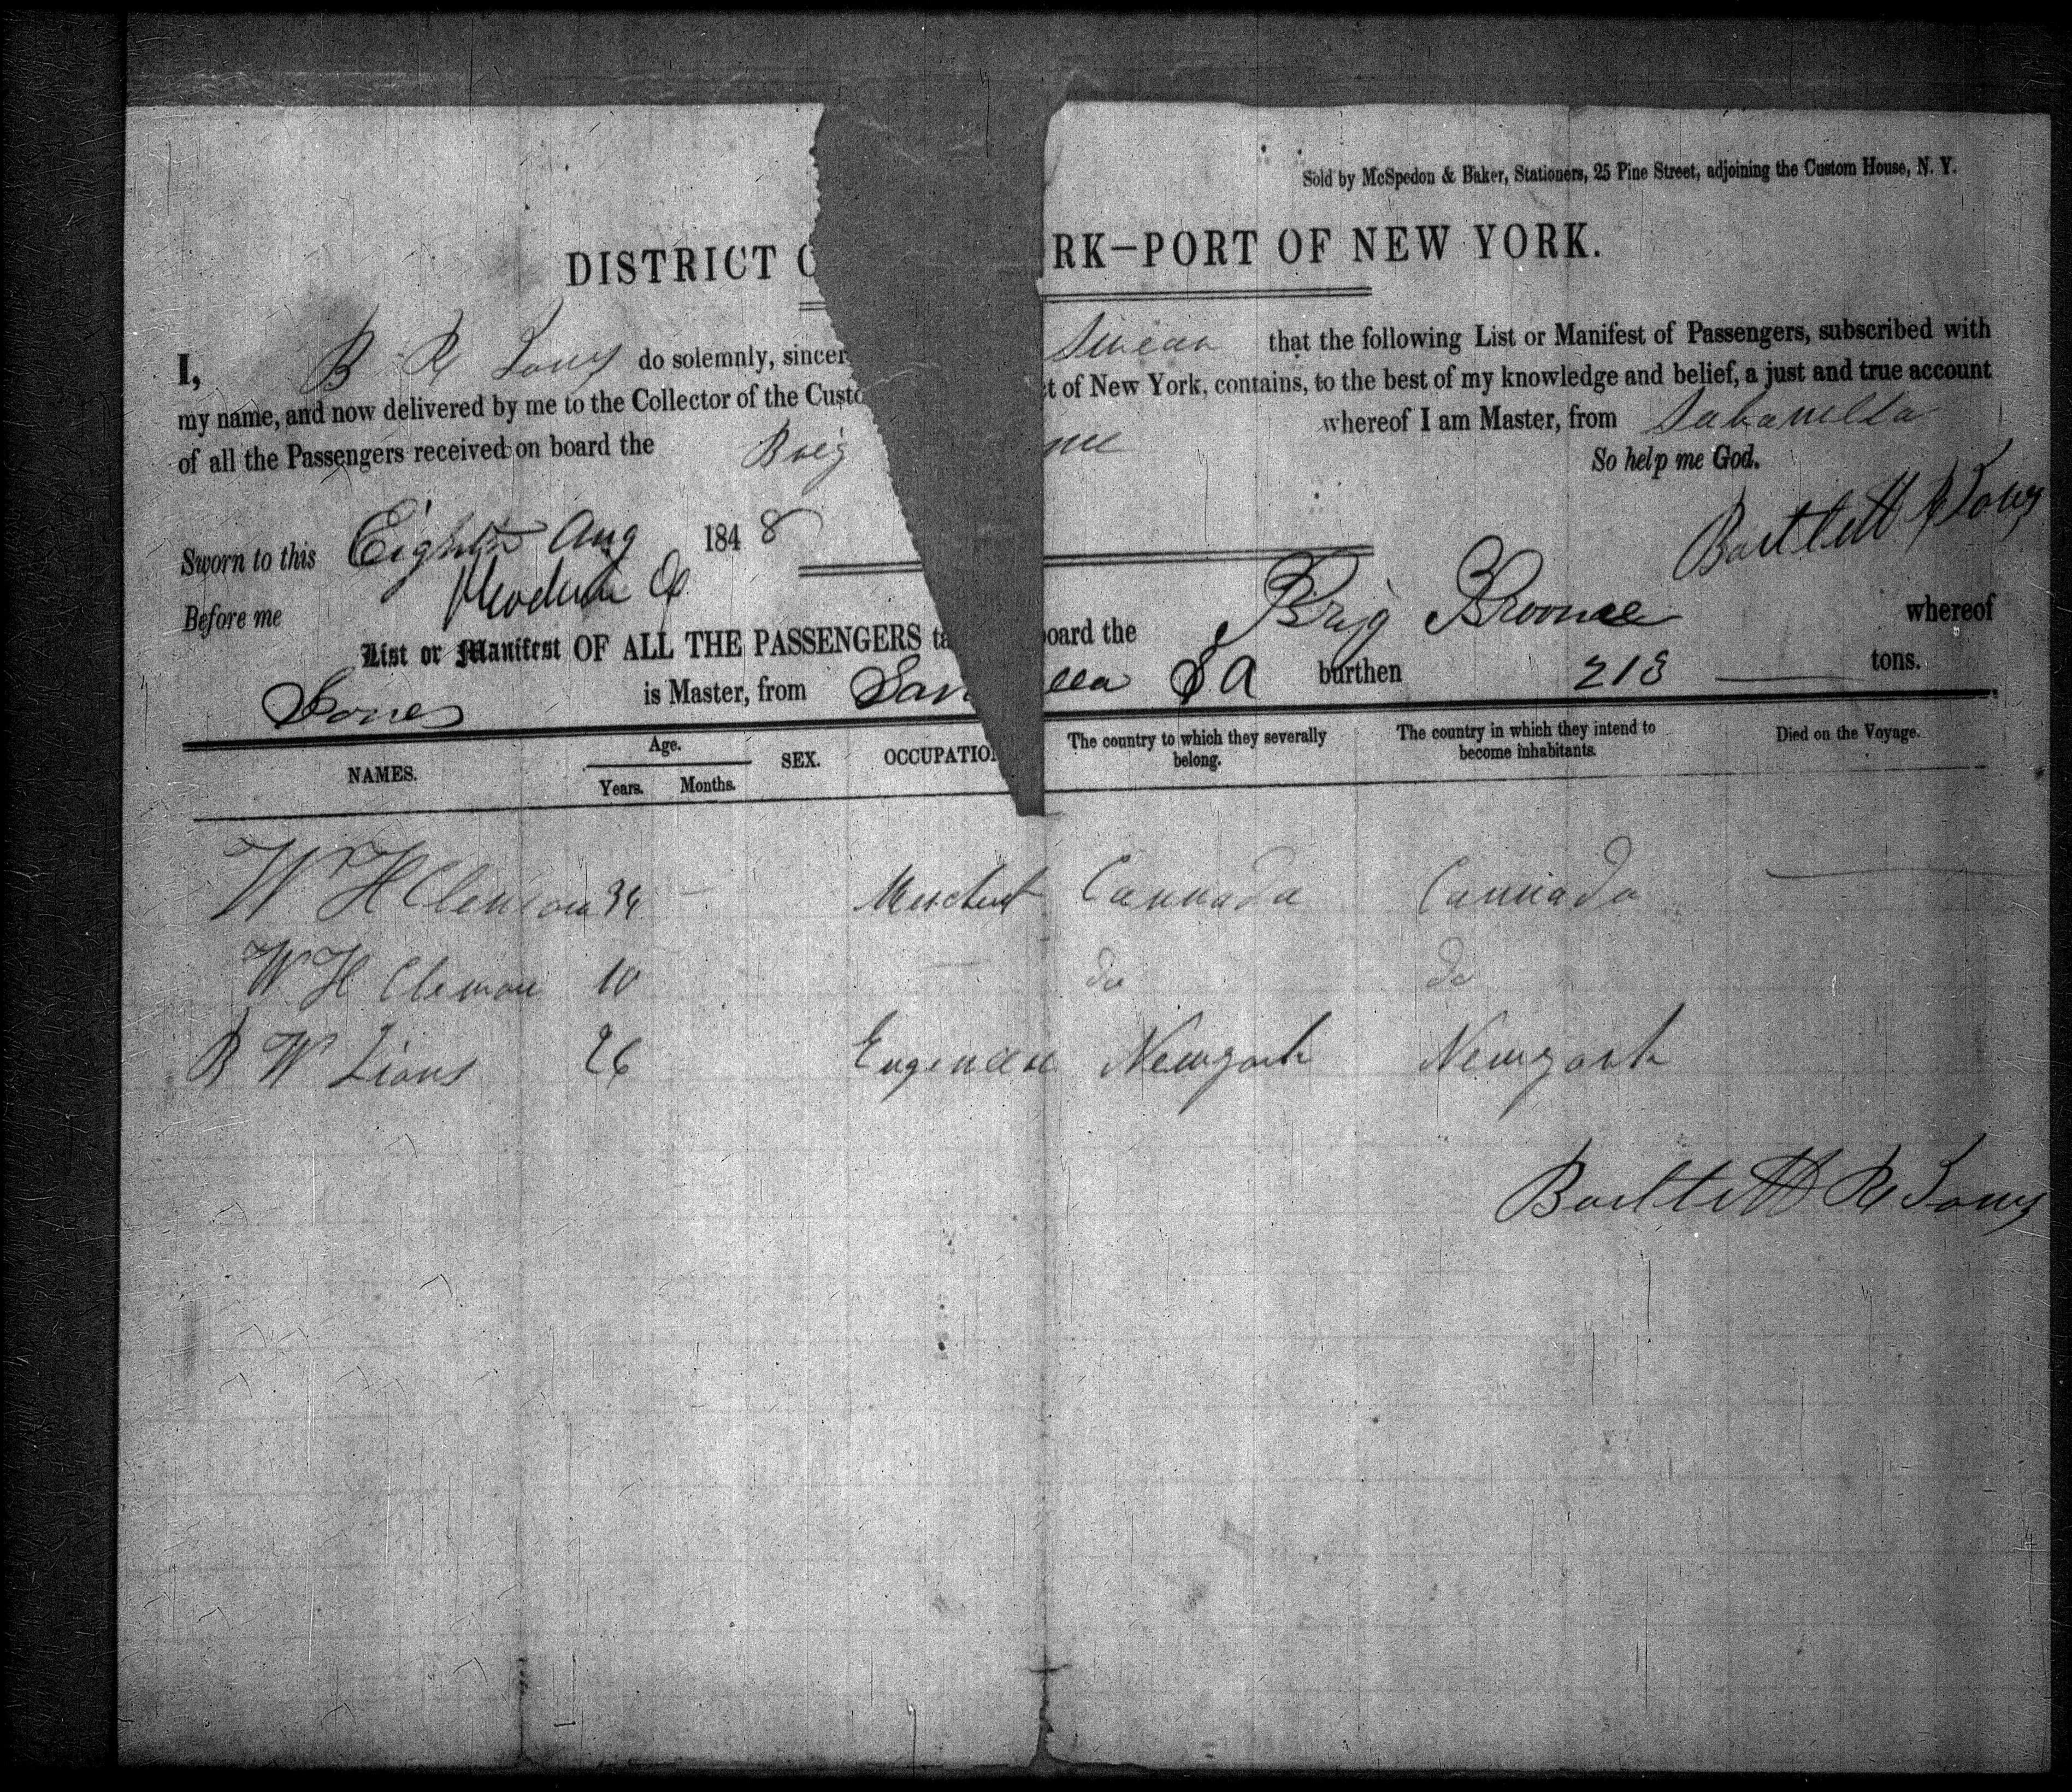 Sold by McSpedon & Baker, Stationers, 25 Pine Street, adjoining the Custom House, N. Y.
DISTRICT O RK—PORT OF NEW YORK.
I, B R Jones do solemnly, sincer Swear that the following List or Manifest of Passengers, subscribed with
my name, and now delivered by me to the Collector of the Custo ct of New York, contains, to the best of my knowledge and belief, a just and true account
of all the Passengers received on board the Brig me whereof I am Master, from Sabanilla
So help me God.
Sworn to this Eighth Aug 1848 Bartlett R Jones
Before me
List or Manifest OF ALL THE PASSENGERS ta board the Brig Broome whereof
Jones is Master, from Sav lla S A burthen 218 tons.
NAMES. Age. Years. Months. SEX. OCCUPATION The country to which they severally belong. The country in which they intend to become inhabitants. Died on the Voyage.
W H 34 — Merchent Cannada Cannada
W H Clemon 10 — do do
B W Lions 26 Newyork Newyork
Bartlett R Jones